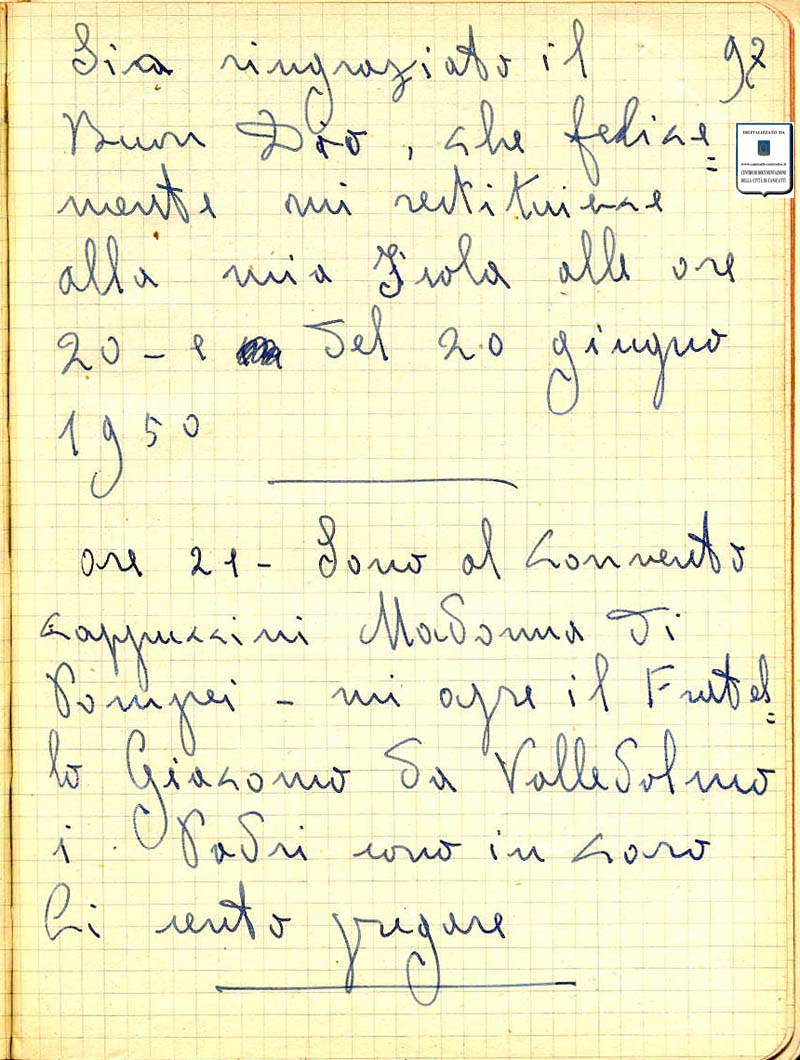 Sia ringraziato il 97
Buon Dio, che felice=
mente mi restituisce
alla mia Isola alle ore
20 - e del 20 giugno
1950
ore 21 - Sono al convento
cappuccini Madonna di
Pompei - mi apre il Fratel=
lo Giacomo da Valledolmo
i Padri sono in coro
Li sento pregare
DIGITALIZZATO DA
CENTRO DI DOCUMENTAZIONE
DELLA CITTÀ DI CANICATTÌ